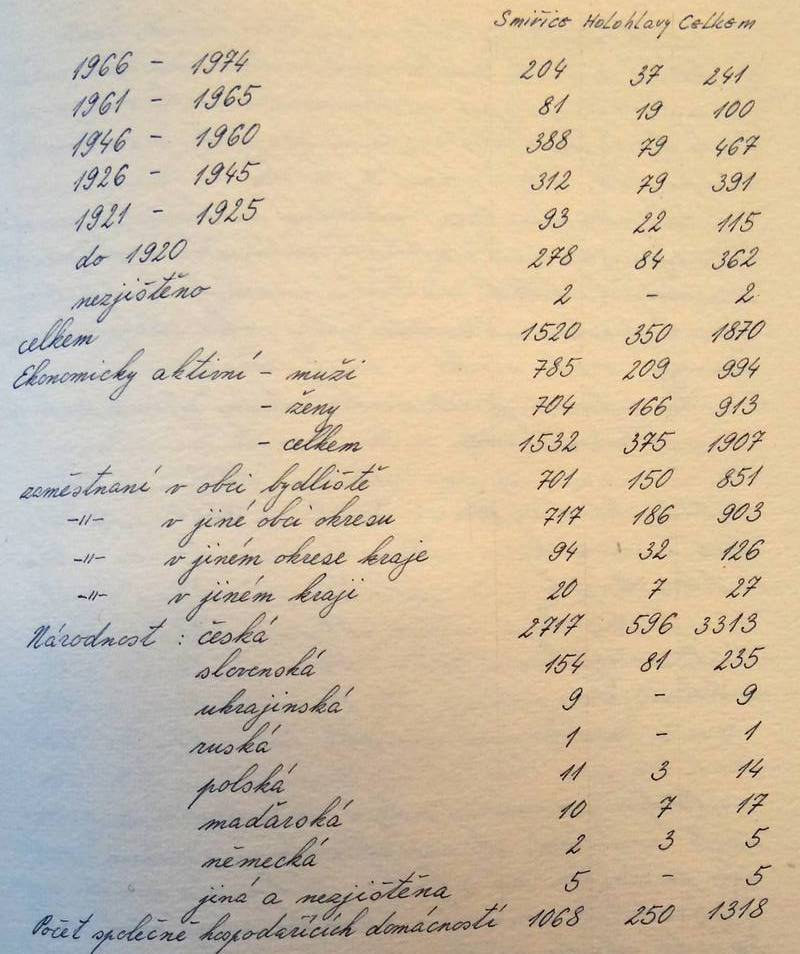 Smiřice Holohlavy Celkem
1966 - 1974 204 37 241
1961 - 1965 81 19 100
1946 - 1960 388 79 467
1926 - 1945 312 79 391
1921 - 1925 93 22 115
do 1920 278 84 362
nezjištěno 2 - 2
celkem 1520 350 1870
Ekonomicky aktivní - muži 785 209 994
- ženy 704 166 913
- celkem 1532 375 1907
zaměstnaní v obci bydliště 701 150 851
-"- v jiné obci okresu 717 186 903
-"- v jiném okrese kraje 94 32 126
-"- v jiném kraji 20 7 27
Národnost : česká 2717 596 3313
slovenská 154 81 235
ukrajinská 9 - 9
ruská 1 - 1
polská 11 3 14
maďarská 10 7 17
německá 2 3 5
jiná a nezjištěna 5 - 5
Počet společně hospodařících domácností 1068 250 1318